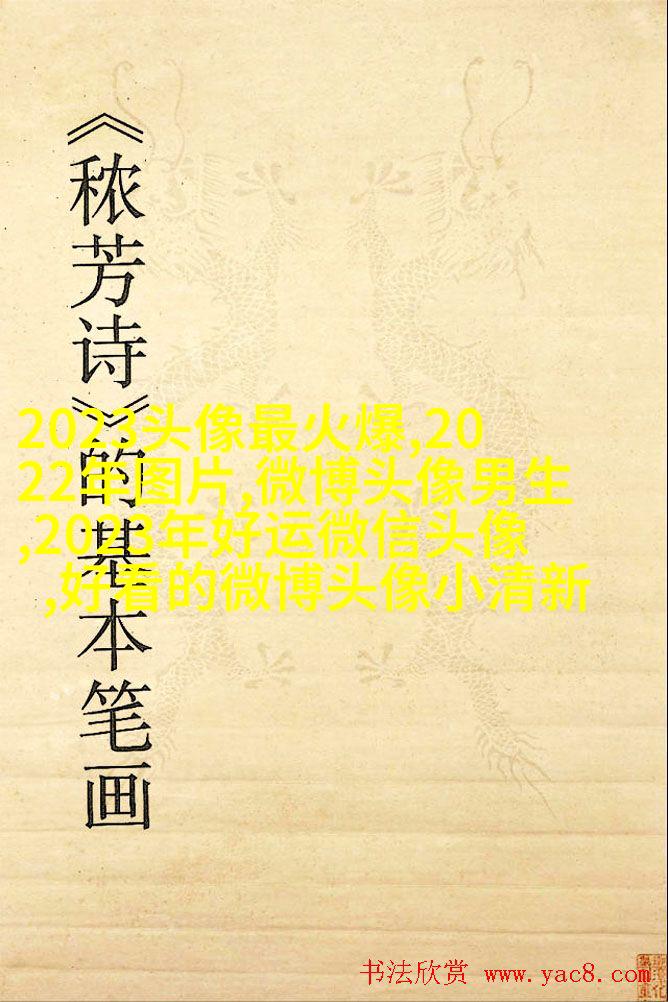 《秾芳诗》的基本笔画
2023头像最火爆,20
22年图片,微博头像男生
,2023年好运微信头像
,好看的微博头像小清新
书法欣赏 www.yac8.com